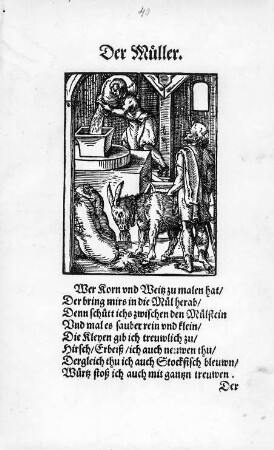 40
Der Müller.
Wer Korn vnd Weitz zu malen hat/
Der bring mirs in die Mül herab/
Denn schütt ichs zwischen den Mülstein
Vnd mal es sauber rein vnd klein/
Die Kleyen gib ich treuwlich zu/
Hirsch/Erbeiß/ich auch neuwen thu/
Dergleich thu ich auch Stockfisch bleuwn/
Würtz stoß ich auch mit gantzn treuwen.
Der